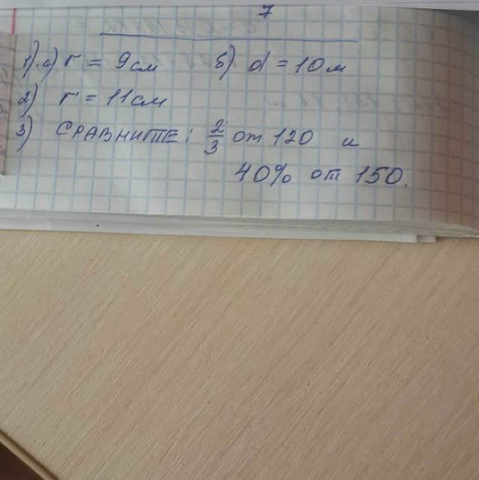 7
1) а) r = 9см б) d = 10м
2) r = 11см
3) СРАВНИТЕ: 2/3 от 120 и
40% от 150.